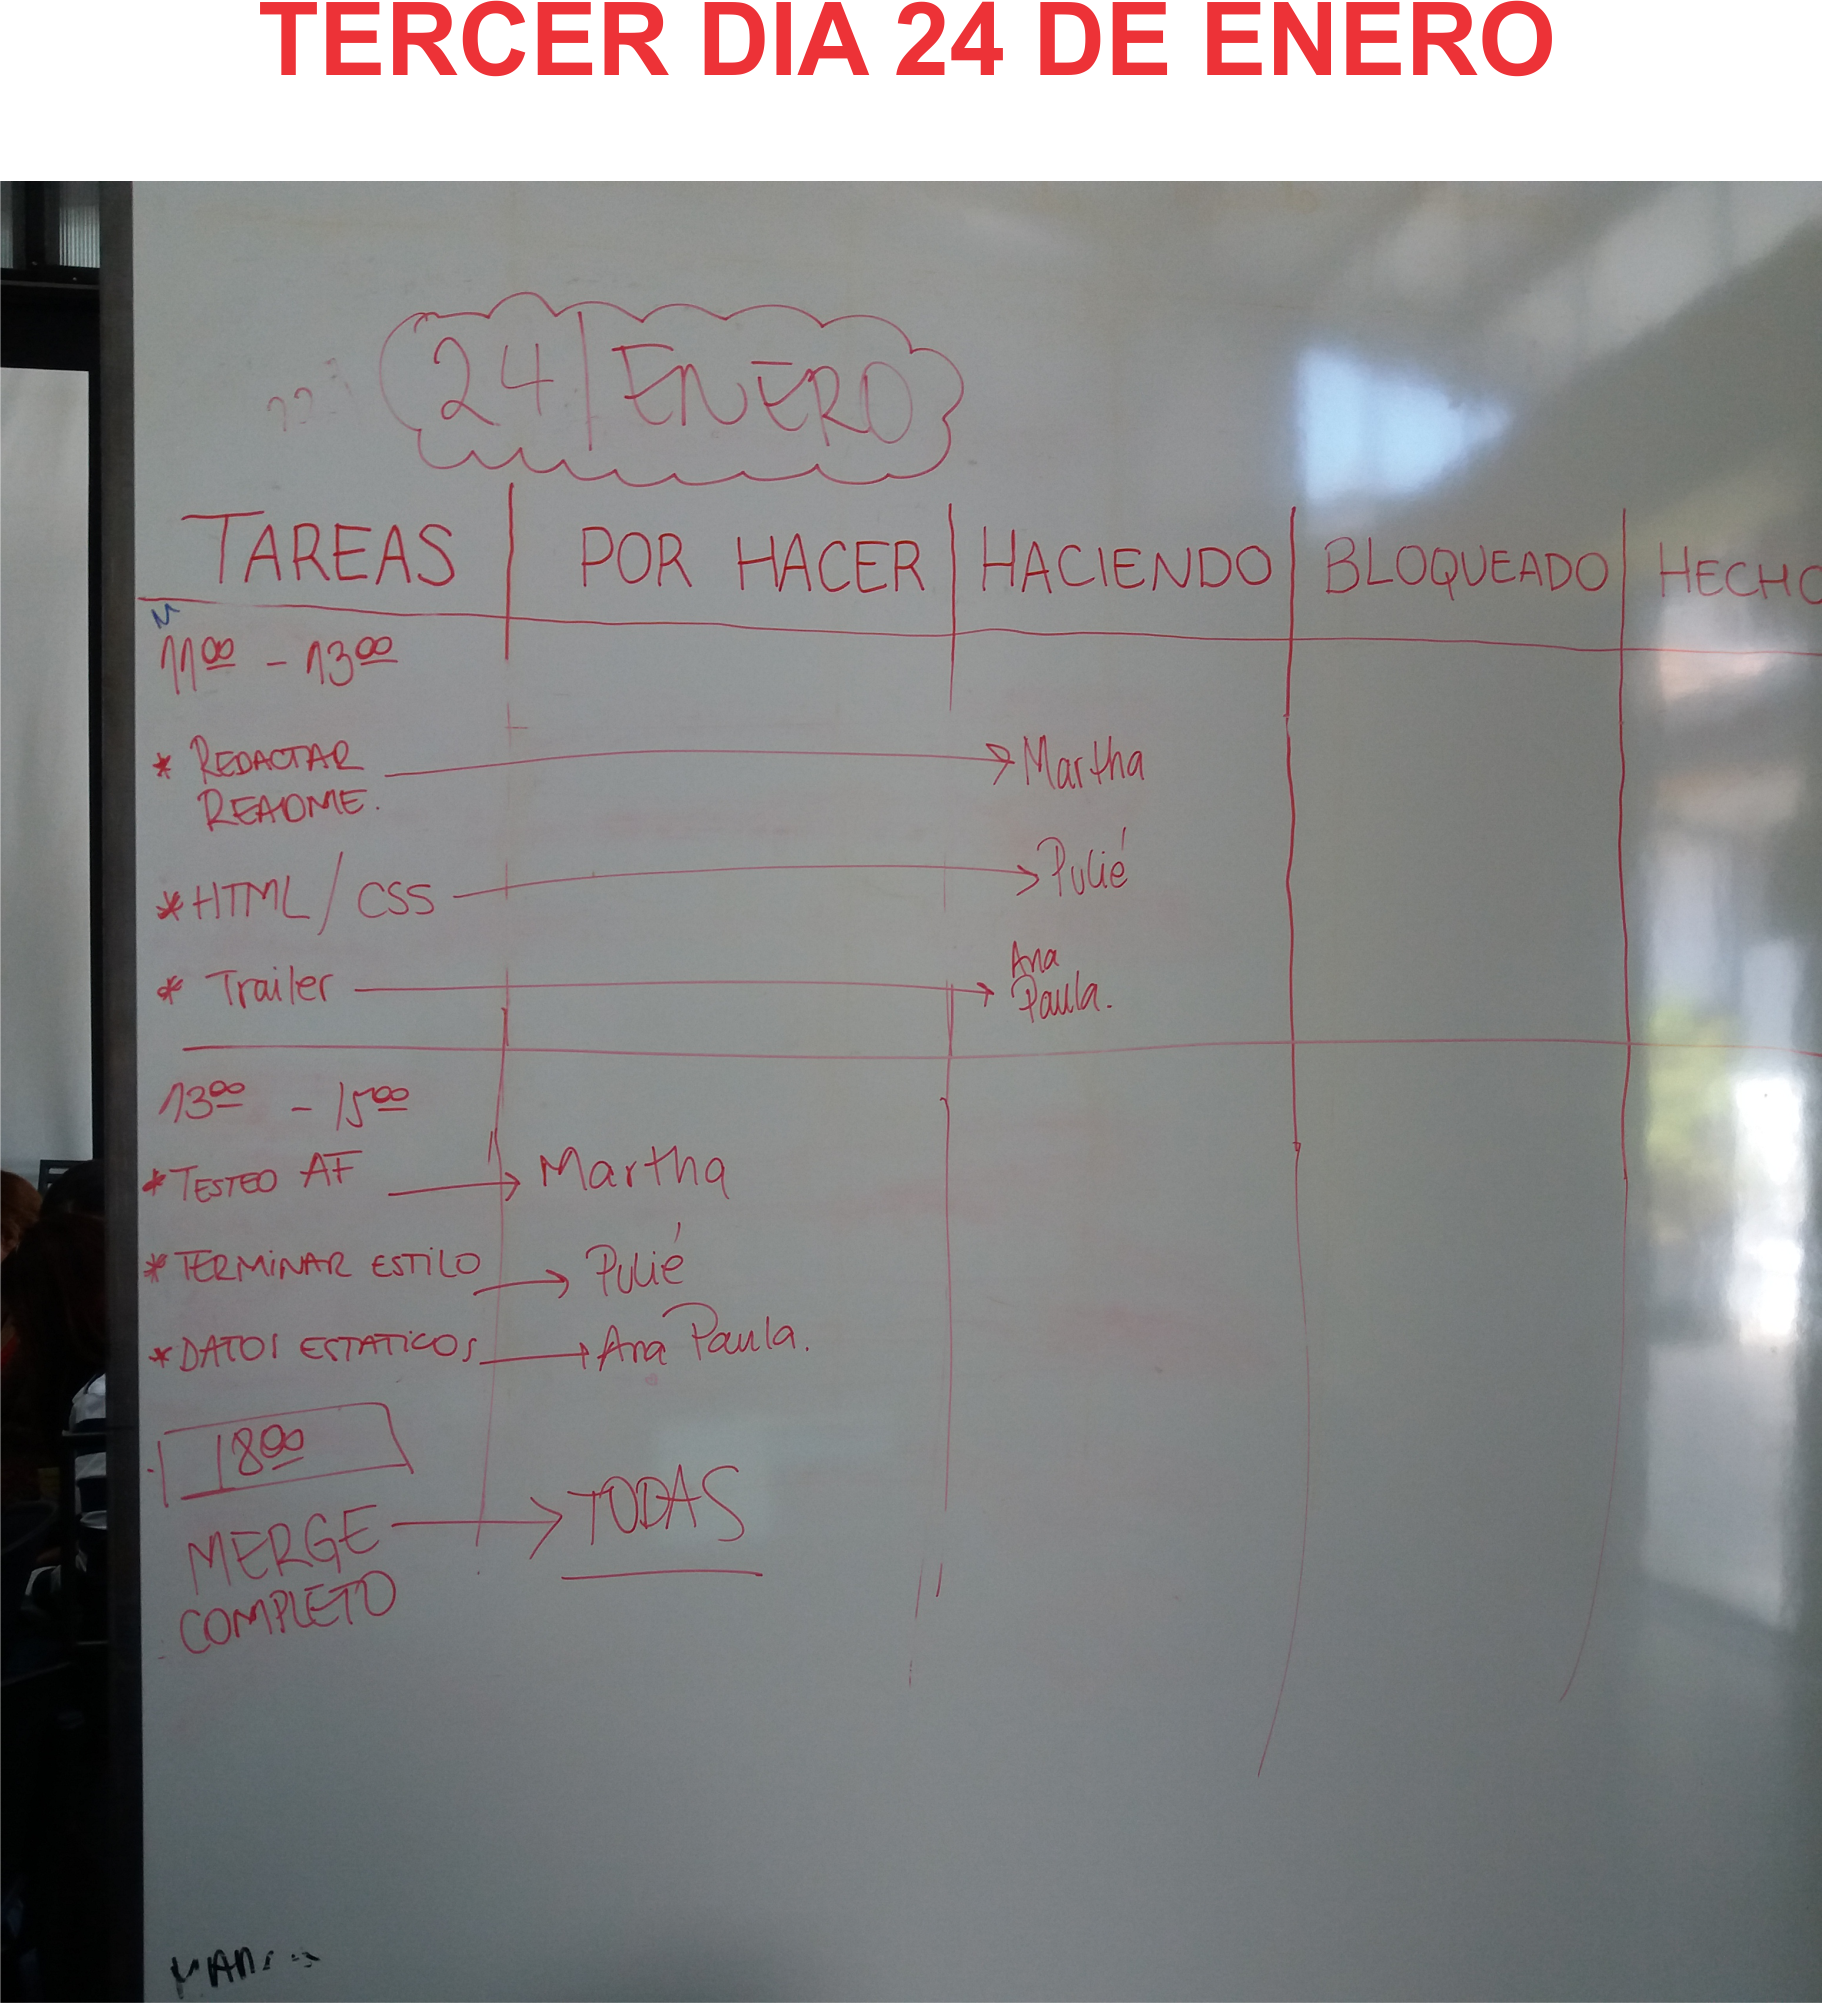 TERCER DIA 24 DE ENERO
24 | ENERO
TAREAS | POR HACER | HACIENDO | BLOQUEADO | HECHO
11:00 - 13:00
* REDACTAR → Martha
README.
* HTML / CSS → Pulié
* Trailer → Ana
Paula.
13:00 - 15:00
* TESTEO AF → Martha
* TERMINAR ESTILO → Pulié
* DATOS ESTATICOS → Ana Paula.
18:00
MERGE → TODAS
COMPLETO